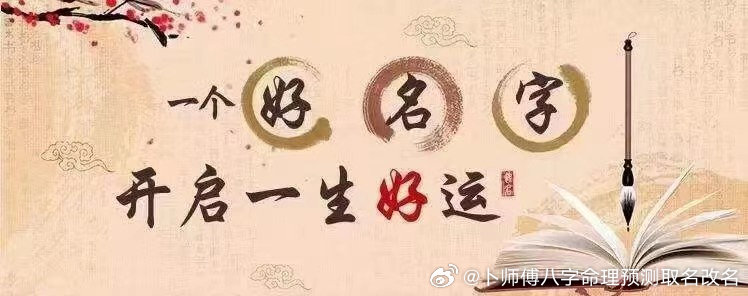 一个好名字
开启一生好运
@卜师傅八字命理预测取名改名